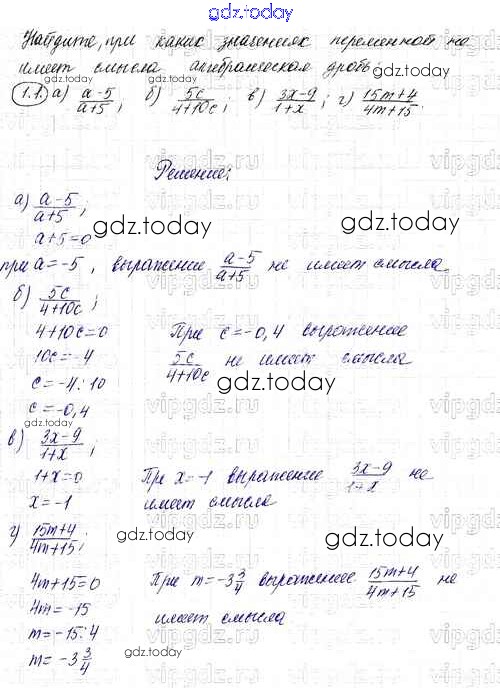 gdz.today
Найдите, при каких значениях переменной не
имеет смысла алгебраическая дробь:
1.1. а) a-5/a+5; б) 5c/4+10c; в) 3x-9/1+x; г) 15m+4/4m+15.
Решение:
а) a-5/a+5;
gdz.today
gdz.today
a+5=0
при a=-5, выражение a-5/a+5 не имеет смысла
б) 5c/4+10c;
4+10c=0
При c=-0,4 выражение
10c=-4
5c/4+10c не имеет смысла
c=-4:10
gdz.today
c=-0,4
gdz.today
в) 3x-9/1+x;
1+x=0
При x=-1 выражение 3x-9/1+x не
x=-1
имеет смысла
г) 15m+4/4m+15;
gdz.today
gdz.today
4m+15=0
При m=-3 3/4 выражение 15m+4/4m+15 не
4m=-15
имеет смысла
m=-15:4
m=-3 3/4
gdz.today
vipgdz.ru